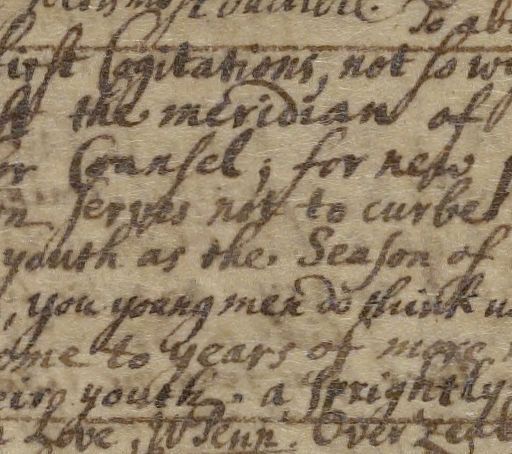 To ab
first Cogitations, not so wi
the meridian of
for Counsel; for new
serves not to curbe
youth as the Season of
, you young men do think
ome to years of more
eir youth. a sprightly
Love, W Penn Over zeal